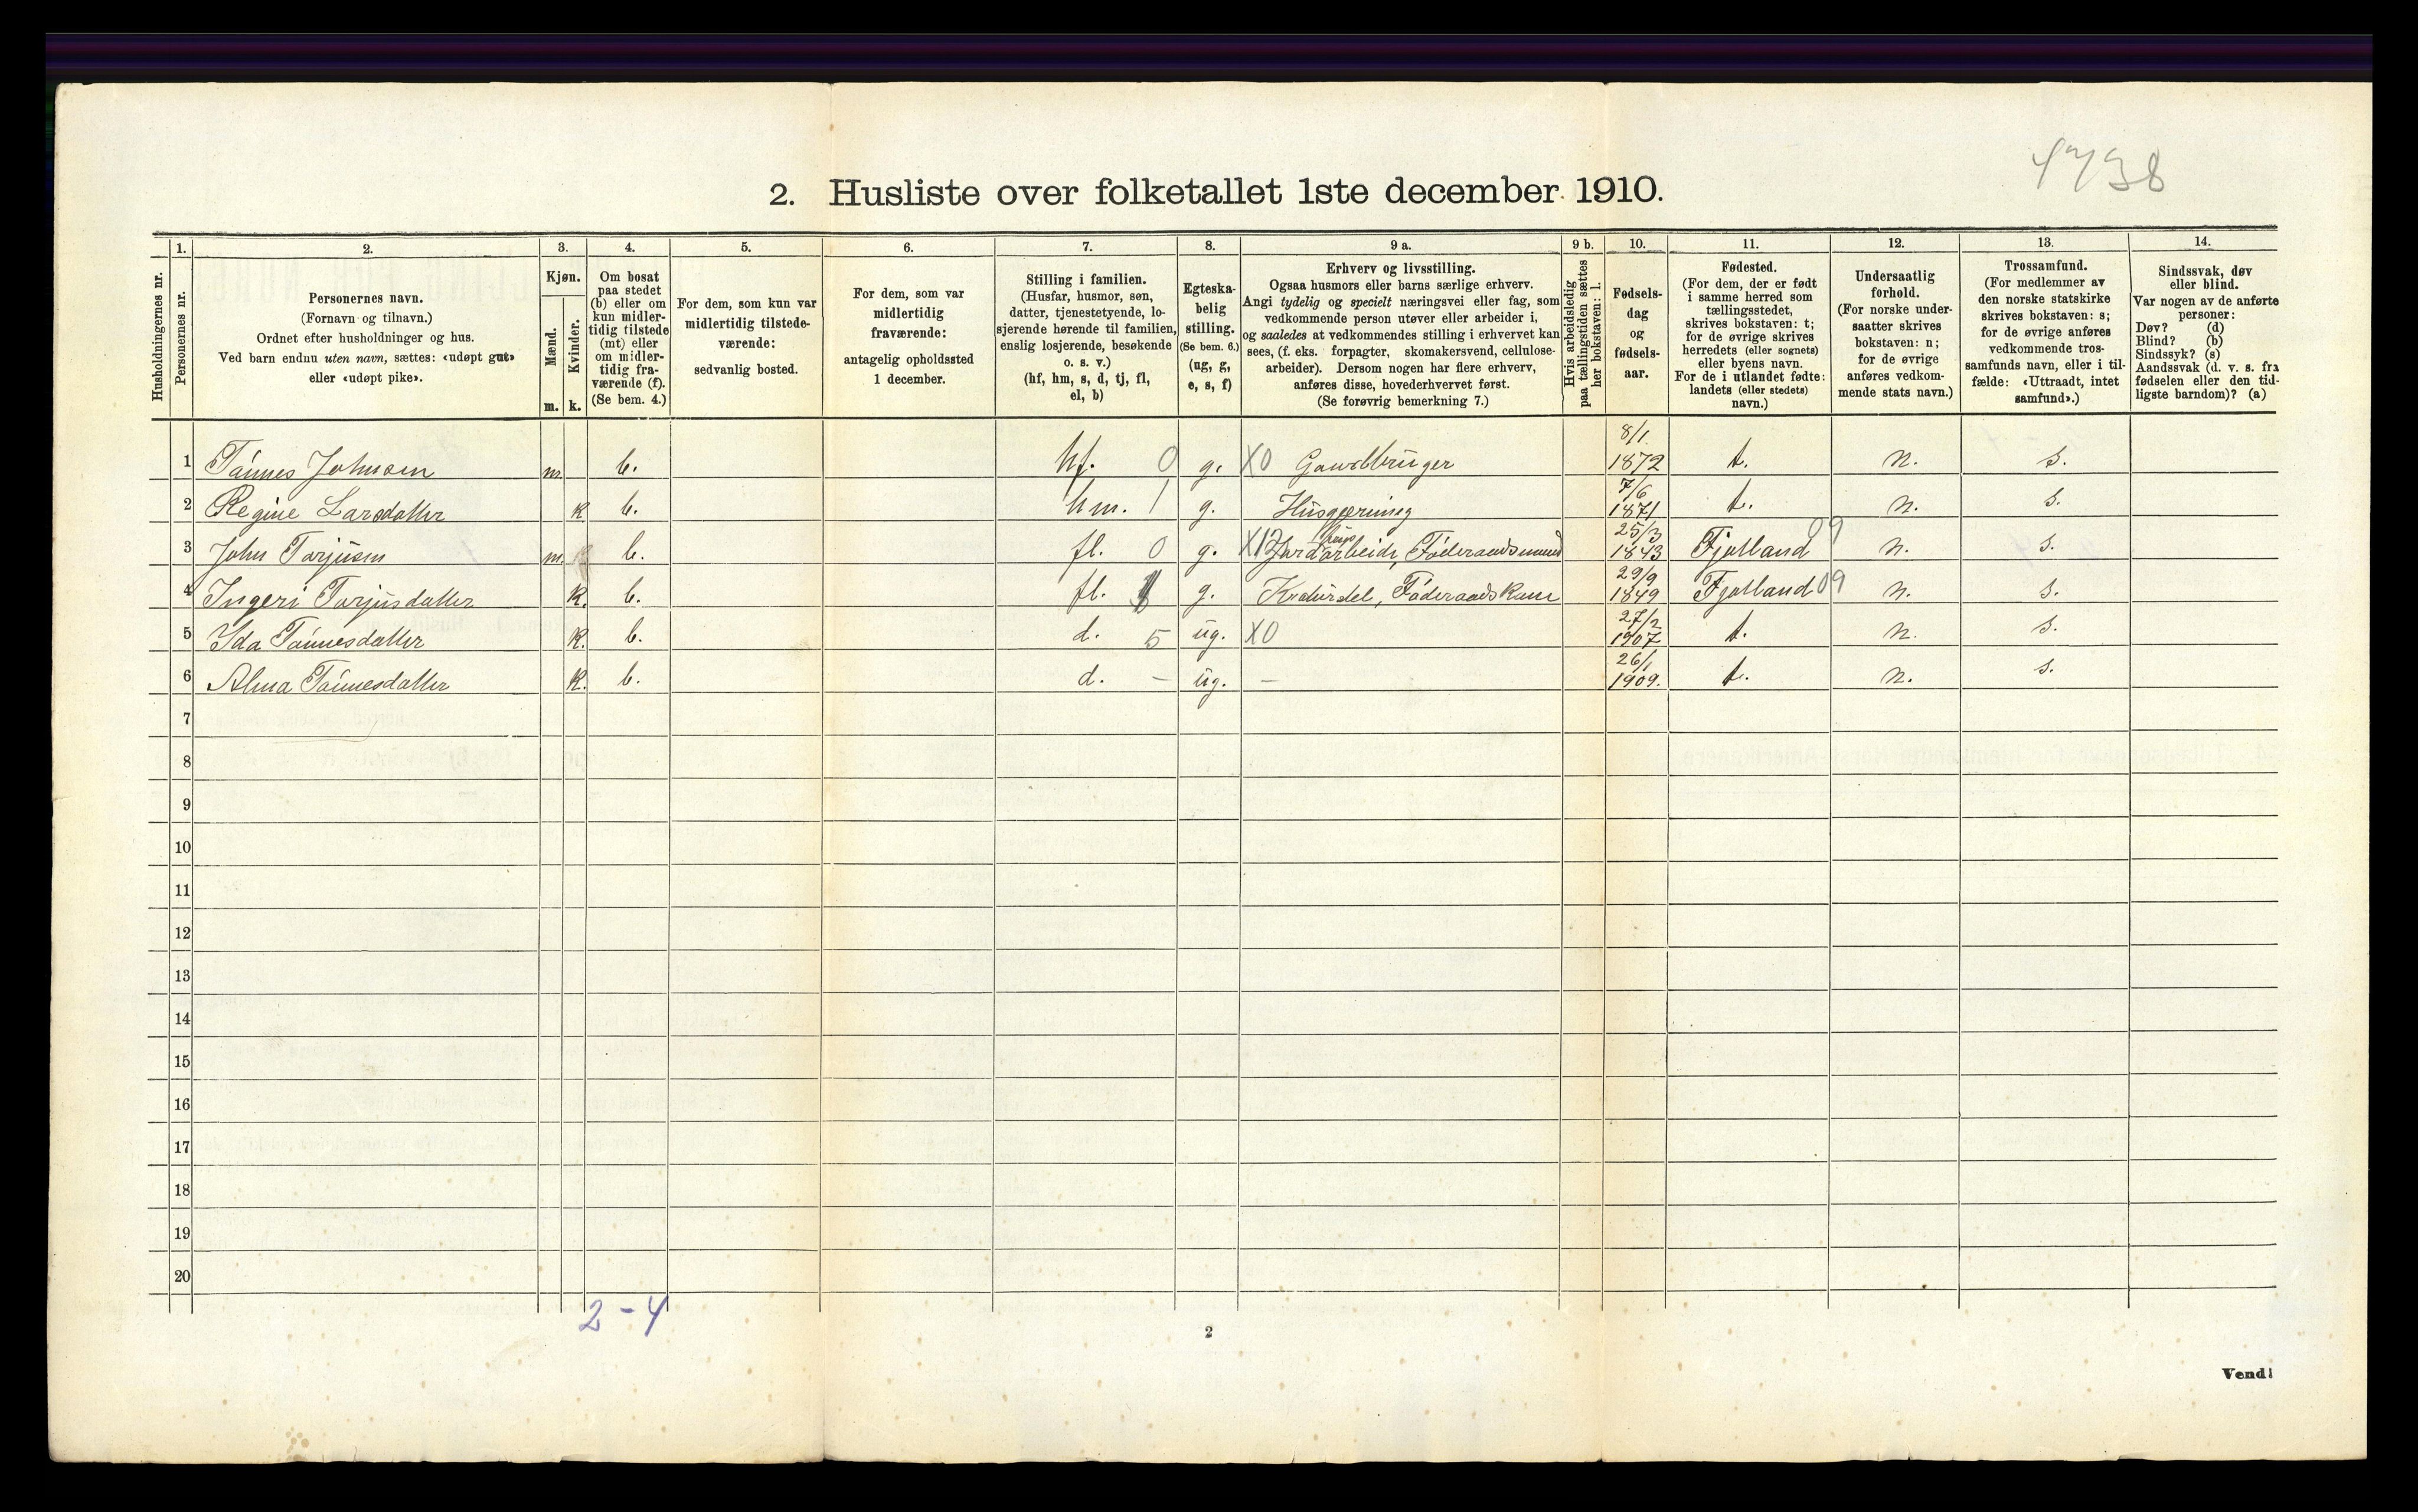 4738
2. Husliste over folketallet 1ste december 1910.
Husholdningernes nr.
1. Personernes nr.
2. Personernes navn. (Fornavn og tilnavn.) Ordnet efter husholdninger og hus. Ved barn endnu uten navn, sættes: «udøpt gut» eller «udøpt pike».
3. Kjøn. Mænd. m. Kvinder. k.
4. Om bosat paa stedet (b) eller om kun midlertidig tilstede (mt) eller om midlertidig fraværende (f). (Se bem. 4.)
5. For dem, som kun var midlertidig tilstedeværende: sedvanlig bosted.
6. For dem, som var midlertidig fraværende: antagelig opholdssted 1 december.
7. Stilling i familien. (Husfar, husmor, søn, datter, tjenestetyende, losjerende hørende til familien, enslig losjerende, besøkende o. s. v.) (hf, hm, s, d, tj, fl, el, b)
8. Egteskabelig stilling. (Se bem. 6.) (ug, g, e, s, f)
9 a. Erhverv og livsstilling. Ogsaa husmors eller barns særlige erhverv. Angi tydelig og specielt næringsvei eller fag, som vedkommende person utøver eller arbeider i, og saaledes at vedkommendes stilling i erhvervet kan sees, (f. eks. forpagter, skomakersvend, cellulosearbeider). Dersom nogen har flere erhverv, anføres disse, hovederhvervet først. (Se forøvrig bemerkning 7.)
9 b. Hvis arbeidsledig paa tællingstiden sættes her bokstaven: l.
10. Fødselsdag og fødselsaar.
11. Fødested. (For dem, der er født i samme herred som tællingsstedet, skrives bokstaven: t; for de øvrige skrives herredets (eller sognets) eller byens navn. For de i utlandet fødte: landets (eller stedets) navn.)
12. Undersaatlig forhold. (For norske undersaatter skrives bokstaven: n; for de øvrige anføres vedkommende stats navn.)
13. Trossamfund. (For medlemmer av den norske statskirke skrives bokstaven: s; for de øvrige anføres vedkommende trossamfunds navn, eller i tilfælde: «Uttraadt, intet samfund».)
14. Sindssvak, døv eller blind. Var nogen av de anførte personer: Døv? (d) Blind? (b) Sindssyk? (s) Aandssvak (d. v. s. fra fødselen eller den tidligste barndom)? (a)
1 Tónnes Johnsen m. b. hf. 0 g. X0 Gaardbruger 8/1 1872 t. n. s.
2 Regine Larsdatter k b. hm. 1 g. Husgjerning 7/6 1871 t. n. s.
3 John Torjusen m. b. fl. 0 g. Føderaadsmand 25/3 1843 Fjotland 09 n. s.
4 Ingeri Torjusdatter k. b. fl. g. Kreaturstel, Føderaadskone 29/9 1849 Fjotland 09 n. s.
5 Ida Tónnesdatter k. b. d. 5 ug. X0 27/2 1907 t. n. s.
6 Alma Tónnesdatter k. b. d. - ug. - 26/1 1909. t. n. s.
7
8
9
10
11
12
13
14
15
16
17
18
19
20
2-4
2
Vend!